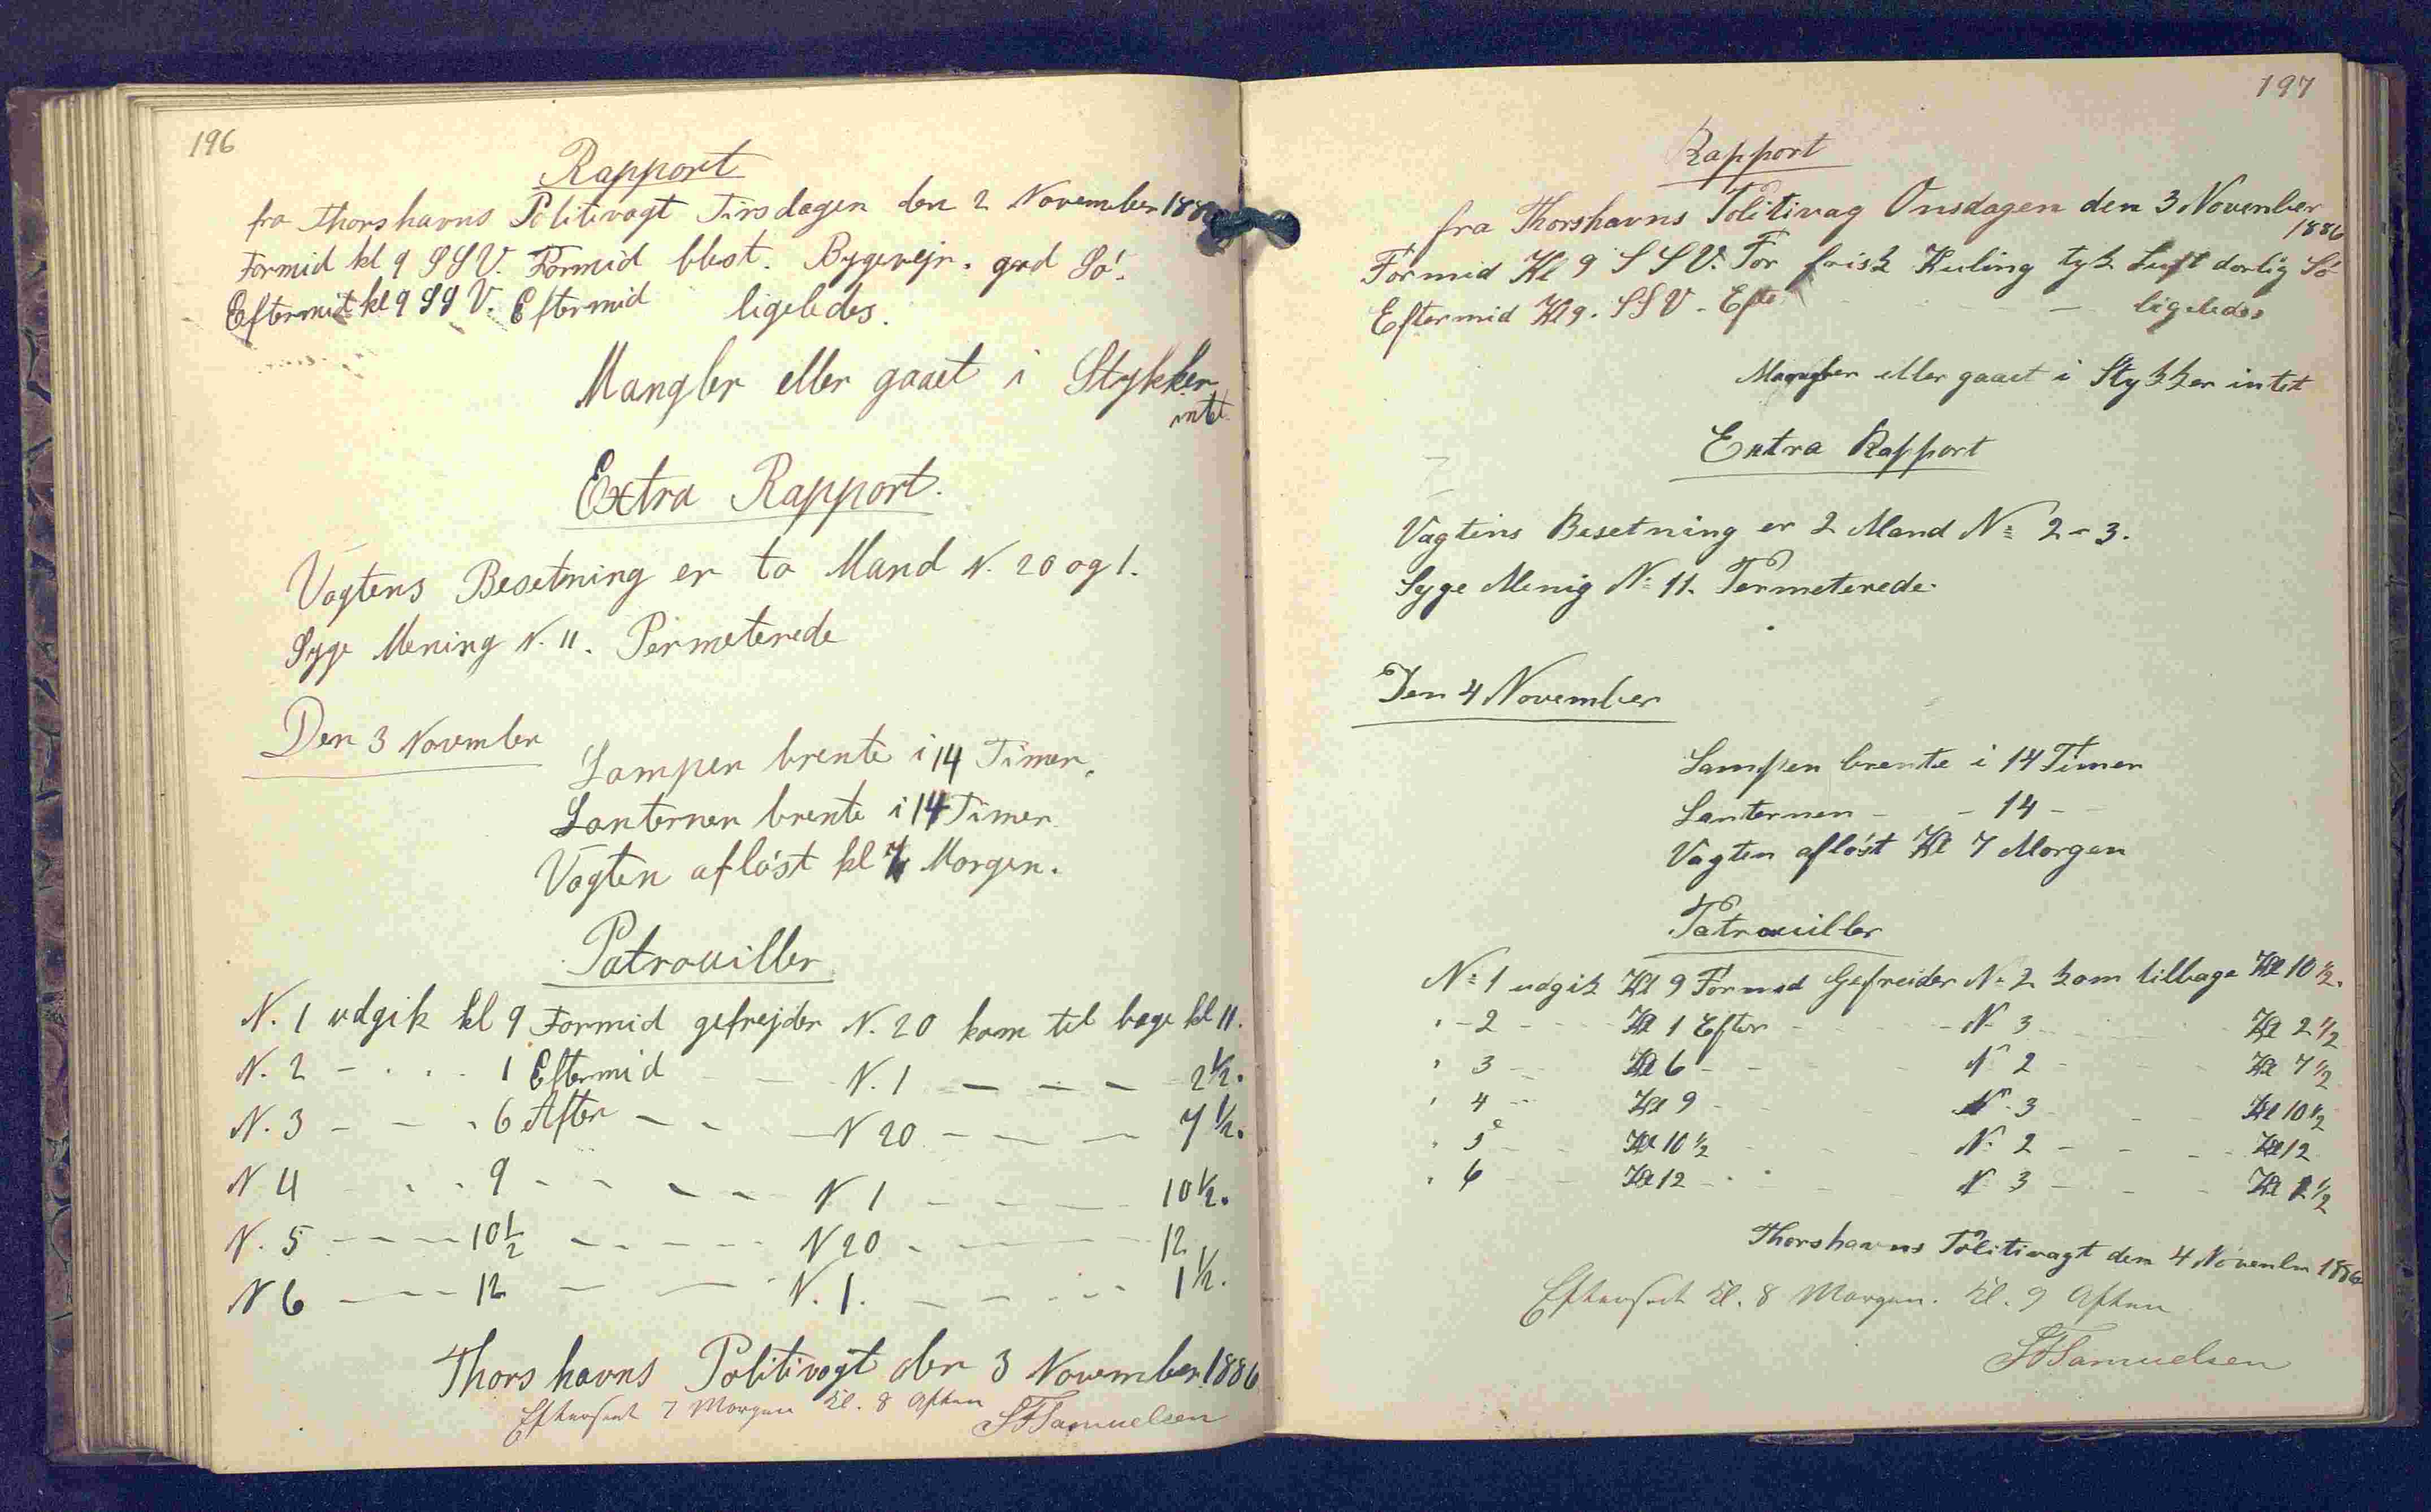 196
Rapport
fra Thorshavns Politivagt Tirsdagen den 2 November 188
Formid kl 9 SSV. Formid blest. Bygevejr. god Sö.
Eftermit kl 9 SSV. Eftermid ligeledes.
Mangler eller gaaet i Stykker
intet
Extra Rapport.
Vagtens Besetning er to Mand N. 20 og 1.
Syge Mening N. 11. Permeterede
Den 3 November
Lampen brente i 14 Timer.
Lanternen brente i 14 Timer
Vagten aflöst kl 7 Morgen.
Patrouiller
N. 1 udgik kl 9 Formid gefrejder N. 20 kom til bage kl 11.
N. 2 - . . . 1 Eftermid - - N. 1 - - - 2 1/2.
N. 3 - - . 6 Aften - - - N 20 - - - 7 1/2.
N 4 - . . 9 - - - - N 1 - - - 10 1/2.
N. 5 - - - 10 1/2 - - - - N 20 - - - 12
N 6 - - - 12 - - - N. 1. - - - - 1 1/2.
Thors havns Politivagt den 3 November 1886
Efterseet 7 Morgen Kl. 8 Aften
Samuelsen
197
Rapport
fra Thorshavns Politivag Onsdagen den 3 November
1886
Formid Kl 9 SSV. For frisk Kuling tyk Luft dorlig Sö
Eftermid Kl 9. SSV - Efte - - - ligeledes
Mangler eller gaaet i Stykker intet
Extra Rapport
Vagtens Besetning er 2 Mand N= 2 - 3.
Syge Menig N= 11. Permeterede
Den 4 November
Lampen brente i 14 Timer
Lanternen - - 14 -
Vagten aflöst Kl 7 Morgen
Patrouiller
N= 1 udgik Kl 9 Formed Gefreider N= 2 kom tilbage Kl 10 1/2.
" - 2 - - - Kl 1 Efter - - - N. 3 - - - Kl 2 1/2
" 3 - - Kl 6 - - - N 2 - - - Kl 7 1/2
" 4 - - Kl 9 - - - N. 3 - - - Kl 10 1/2
" 5 - - Kl 10 1/2 - - - N. 2 - - - Kl 12
" 6 - - Kl 12 - - - N 3 - - - Kl 1 1/2
Thorshavns Politivagt den 4 Novenbr 1886
Efterseet Kl. 8 Morgen. Kl. 9 Aften
Samuelsen